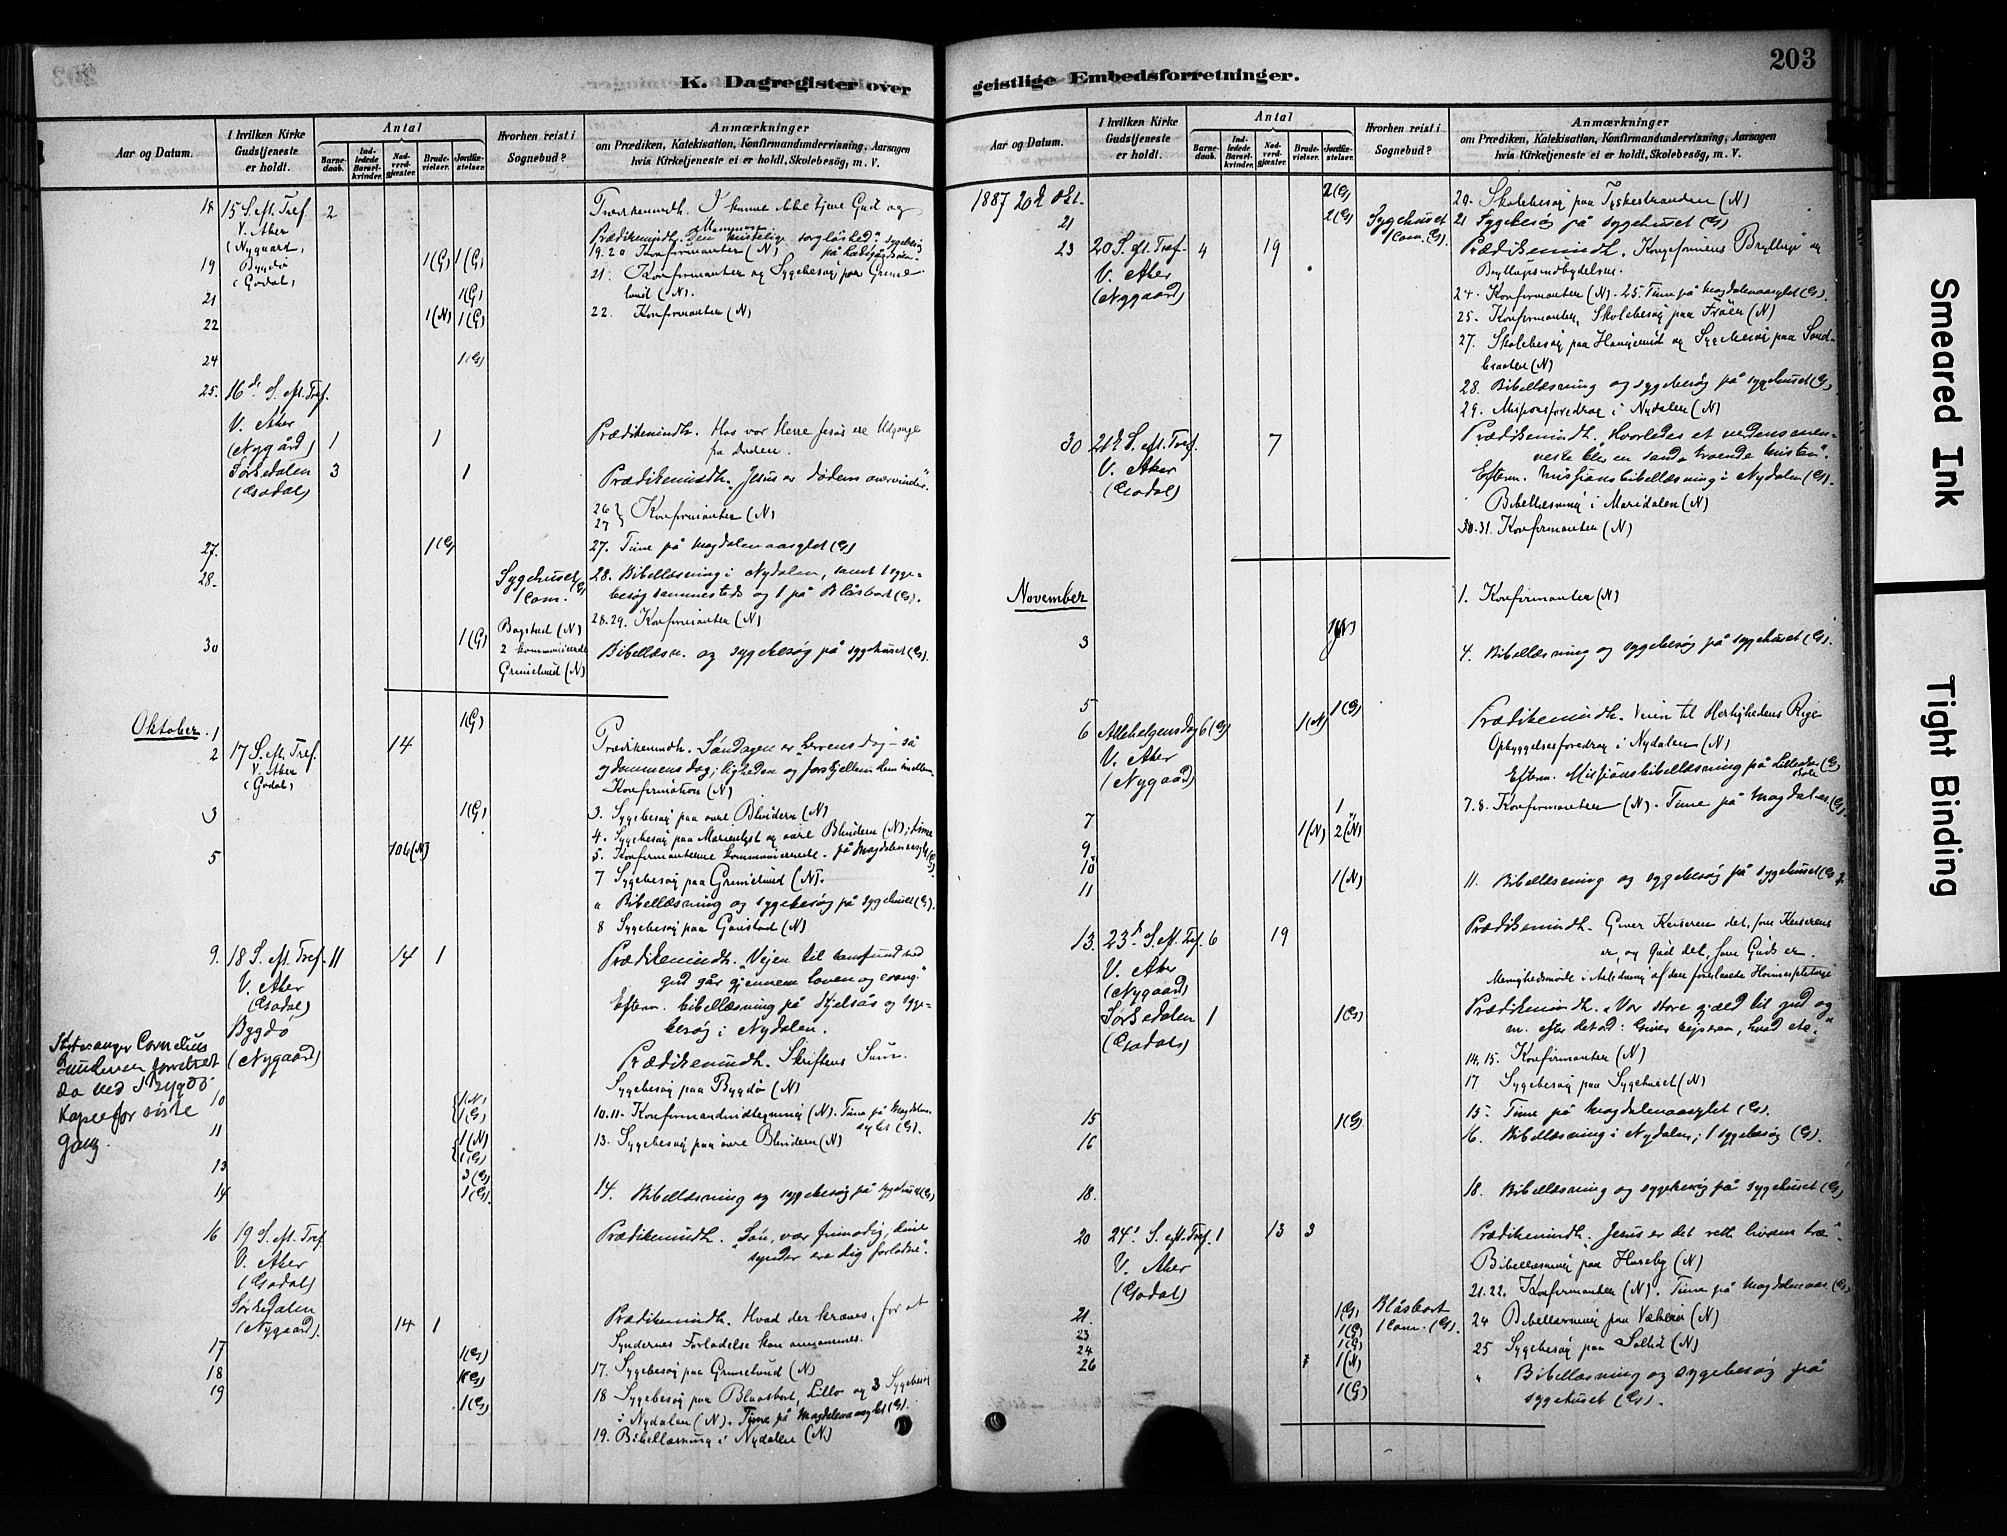 203
K. Dagregister over
geistlige Embedsforretninger.
Aar og Datum.
I hvilken Kirke
Gudstjeneste
er holdt.
Antal
Barne-
daab.
Ind-
ledede
Barsel-
kvinder.
Nad-
verd-
gjæster.
Brude-
vielser.
Jordfæ-
stelser.
Hvorhen reist i
Sognebud?
Anmærkninger
om Prædiken, Katekisation, Konfirmandundervisning, Aarsagen
hvis Kirketjeneste ei er holdt, Skolebesög, m. V.
18 15 S. eft. Tref. 2
V. Aker
(Nygaard)
Prædikenindh. I kunne ikke tjene Gud og
Mammon
19 Bygdö
(Godal)
1(G) 1(G)
19. 20 Konfirmanter (N)
21. Konfirmanter og Sygebesøg paa Grime-
lund (N).
21 1(G)
22 1(N) 1(G)
22. Konfirmanter (N)
24 1(G)
25. 16de S. eft. Tref.
V. Aker
(Nygård) 1 1
Prædikenindh. Hos vor Herre Jesus ere Udgange
fra Døden.
Sørkedalen 3 1
(Godal)
Prædikenindh. „Jesus er dödens overvinder".
26 }
27 } Konfirmanter (N)
27. 1(G)
27. Time på Magdalenaasylet (G)
28. Sygehuset (G)
1 Com.
28. Bibellæsning i Nydalen, samt 1 syge-
besög sammesteds og 1 på Blåsbort (G).
28. 29. Konfirmanter (N)
Bogstad (N)
2 kommunicerede
Grimelund (N)
30 1(G)
Bibellæsn. og sygebesög på sygehuset (G).
Oktober. 1 1(G)
2 17 S. eft. Tref. 14
V. Aker
(Godal)
Prædikenindh. Söndagen er herrens dag – så
og dommens dag; ligheden og forskjellen dem imellem.
Konfirmation (N)
3 1(G)
3. Sygebesøg paa övre Blindern (N)
4. Sygebesøg paa Marienlyst og övre Blindern (N); time
på Magdalenaasylet (G).
5 106(N)
5. Konfirmanterne kommunicerede.
7 Sygebesøg paa Grimelund (N).
" Bibellæsning og sygebesög på sygehuset (G).
8 Sygebesøg paa Gaustad (N)
9. 18 S. eft. Tref. 11 14 1
V. Aker
(Godal)
Prædikenindh. „Vejen til samfund med
gud går gjennem loven og evang."
Efterm. bibellæsning på Kjelsås og syge-
besög i Nydalen.
Bygdö
(Nygaard)
Prædikenindh. Skriftens Sum.
Sygebesøg paa Bygdø (N)
Kirkesanger Cornelius
Gundersen forrettet
da ved Bygdö
Kapel for siste
gang.
10 1(N)
1(G)
10. 11. Konfirmandindtegning (N). Time på Magdalena-
asylet (G).
11 1(N)
1(G)
13. Sygebesøg paa övre Blindern (N)
13 3(G)
14 1(G)
14. Bibellæsning og sygebesög på sygehuset (G)
16 19 S. eft. Tref.
V. Aker
(Godal)
Prædikenindh. „Sön, vær frimodig, dine
synder ere dig forladne".
Sørkedalen
(Nygaard). 14 1
Prædikenindh. Hvad der kræves, for at
Syndernes Forladelse kan annammes.
17 1(G)
17. Sygebesøg paa Grimelund (N)
18
18 Sygebesøg paa Blaasbort, Lillo og 3 Sygebesøg
i Nydalen (N). Time på Magdalenaasylet (G).
19 1(G)
19. Bibellæsning i Nydalen (N)
Aar og Datum.
I hvilken Kirke
Gudstjeneste
er holdt.
Antal
Barne-
daab.
Ind-
ledede
Barsel-
kvinder.
Nad-
verd-
gjæster.
Brude-
vielser.
Jordfæ-
stelser.
Hvorhen reist i
Sognebud?
Anmærkninger
om Prædiken, Katekisation, Konfirmandundervisning, Aarsagen
hvis Kirketjeneste ei er holdt, Skolebesög, m. V.
1887 20de Okt. 2(G)
20. Skolebesøg paa Tyskestranden (N)
21 2(G) Sygehuset
1 Com. (G).
21 Sygebesög på sygehuset (G)
23 20 S. eft. Tref. 4 19
V. Aker
(Nygaard)
Prædikenindh. Kongesønnens Bryllup og
Bryllupsindbydelsen.
24. Konfirmanter (N). 25. Time på Magdalenaasylet (G).
25. Konfirmanter, Skolebesøg paa Frøen (N)
27. Skolebesøg paa og Sygebesøg paa Sond-
(N)
28. Bibellæsning og sygebesög på sygehuset (G)
29. Missionsforedrag i Nydalen (N)
30 21de S. eft. Tref. 7
V. Aker
(Godal)
Prædikenindh. „Hvorledes et verdensmen-
neske blev en sand troende kristen".
Efterm. missionsbibellæsning i Nydalen (G).
Bibellæsning i Maridalen (N)
30. 31. Konfirmanter (N)
November
1. Konfirmanter (N)
3
4. Bibellæsning og sygebesög på sygehuset (G).
5 1(G)
6 Allehelgensdag 6(G) 1(N)
V. Aker
(Nygaard)
Prædikenindh. Veien til Herlighedens Rige
Opbyggelsesforedrag i Nydalen (N)
Efterm. Missionsbibellæsning på Lilleaker (G)
skole
7 1
7. 8. Konfirmanter (N). Time på Magdalena (G).
9 1(N) 2(N)
10
11 1(N)
11. Bibellæsning og sygebesög på sygehuset (G).
13. 23de S. eft. Tref. 6 19
V. Aker
(Nygaard)
Prædikenindh. Giver Keiseren det, som Keiserens
er, og Gud det, som Guds er.
Menighedsmöde i Anledning af den forestaaende
Sørkedalen 1 1(G)
(Godal)
Prædikenindh. „Vor store gjæld til gud og
m. efter det ord: Giver kejseren, hvad etc."
14. 15. Konfirmanter (N)
17 Sygebesøg paa Sygehuset (N)
15 1(G)
15. Time på Magdalenaasylet (G).
16
16. Bibellæsning i Nydalen; 1 sygebesög (G).
18.
18. Bibellæsning og sygebesög på sygehuset (G)
20 24de S. eft. Tref. 1 13 3
V. Aker
(Godal)
Prædikenindh. „Jesus er det rette livsens træ".
Bibellæsning paa Huseby (N)
21. 22. Konfirmanter (N). Time på Magdalenaas. (G)
21. 1(G) Blåsbort
23 1(G) 1 Com. (G).
24 Bibellæsning paa Vækerø (N)
24 1(G)
25 Sygebesøg paa Sollid (N)
26 1(N)
1(G)
" Bibellæsning og sygebesög på
sygehuset (G).
Smeared Ink
Tight Binding